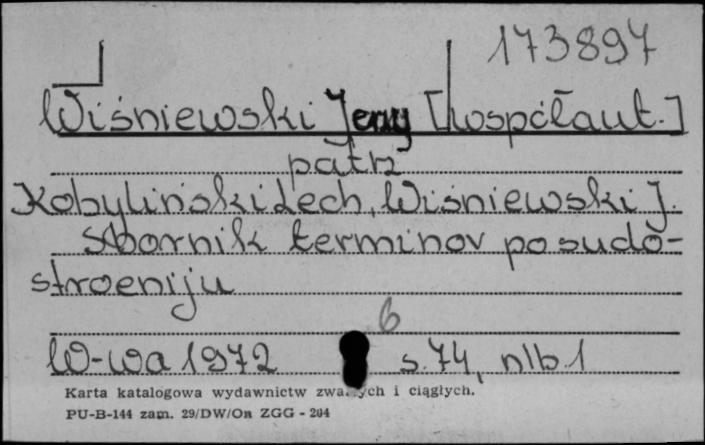 173897
Wiśniewski Jerzy [współaut.]
patrz
Kobyliński Lech, Wiśniewski J.
Sbornik terminov po sudo-
stroeniju
6
W-wa 1972 s. 74, nlb. 1
Karta katalogowa wydawnictw zwartych i ciągłych.
PU-B-144 zam. 29/DW/On ZGG - 204